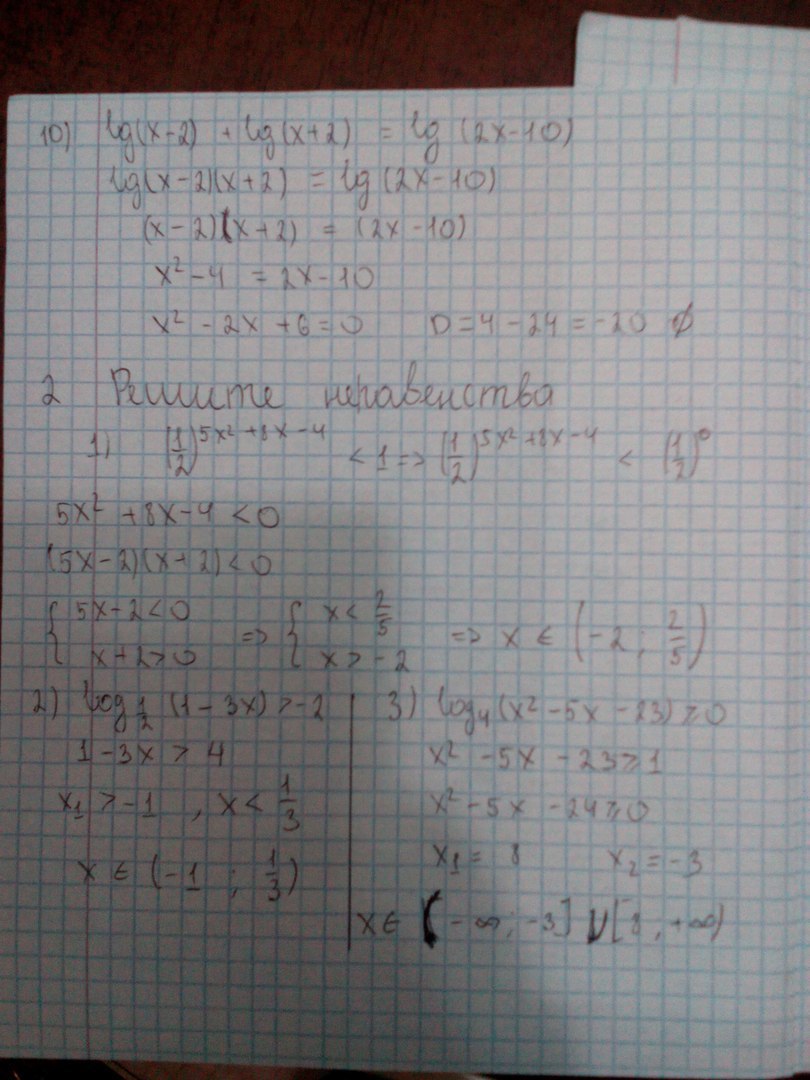 10) lg(x-2) + lg(x+2) = lg (2x-10)
lg(x-2)(x+2) = lg(2x-10)
(x-2)(x+2) = (2x-10)
x² - 4 = 2x-10
x² - 2x + 6 = 0 D = 4 - 24 = -20 ∅
2 Решите неравенства
1) (1/2)^(5x²+8x-4) < 1 => (1/2)^(5x²+8x-4) < (1/2)⁰
5x² + 8x-4 < 0
(5x-2)(x+2) < 0
{ 5x-2 < 0 => { x < 2/5 => x ∈ (-2 ; 2/5)
x+2 > 0 x > -2
2) log_1/2 (1-3x) > -2
1-3x > 4
x₁ > -1 , x < 1/3
x ∈ (-1 ; 1/3)
3) log₄(x² - 5x - 23) ≥ 0
x² - 5x - 23 ≥ 1
x² - 5x - 24 ≥ 0
x₁ = 8 x₂ = -3
x ∈ (-∞; -3] U [8, +∞)